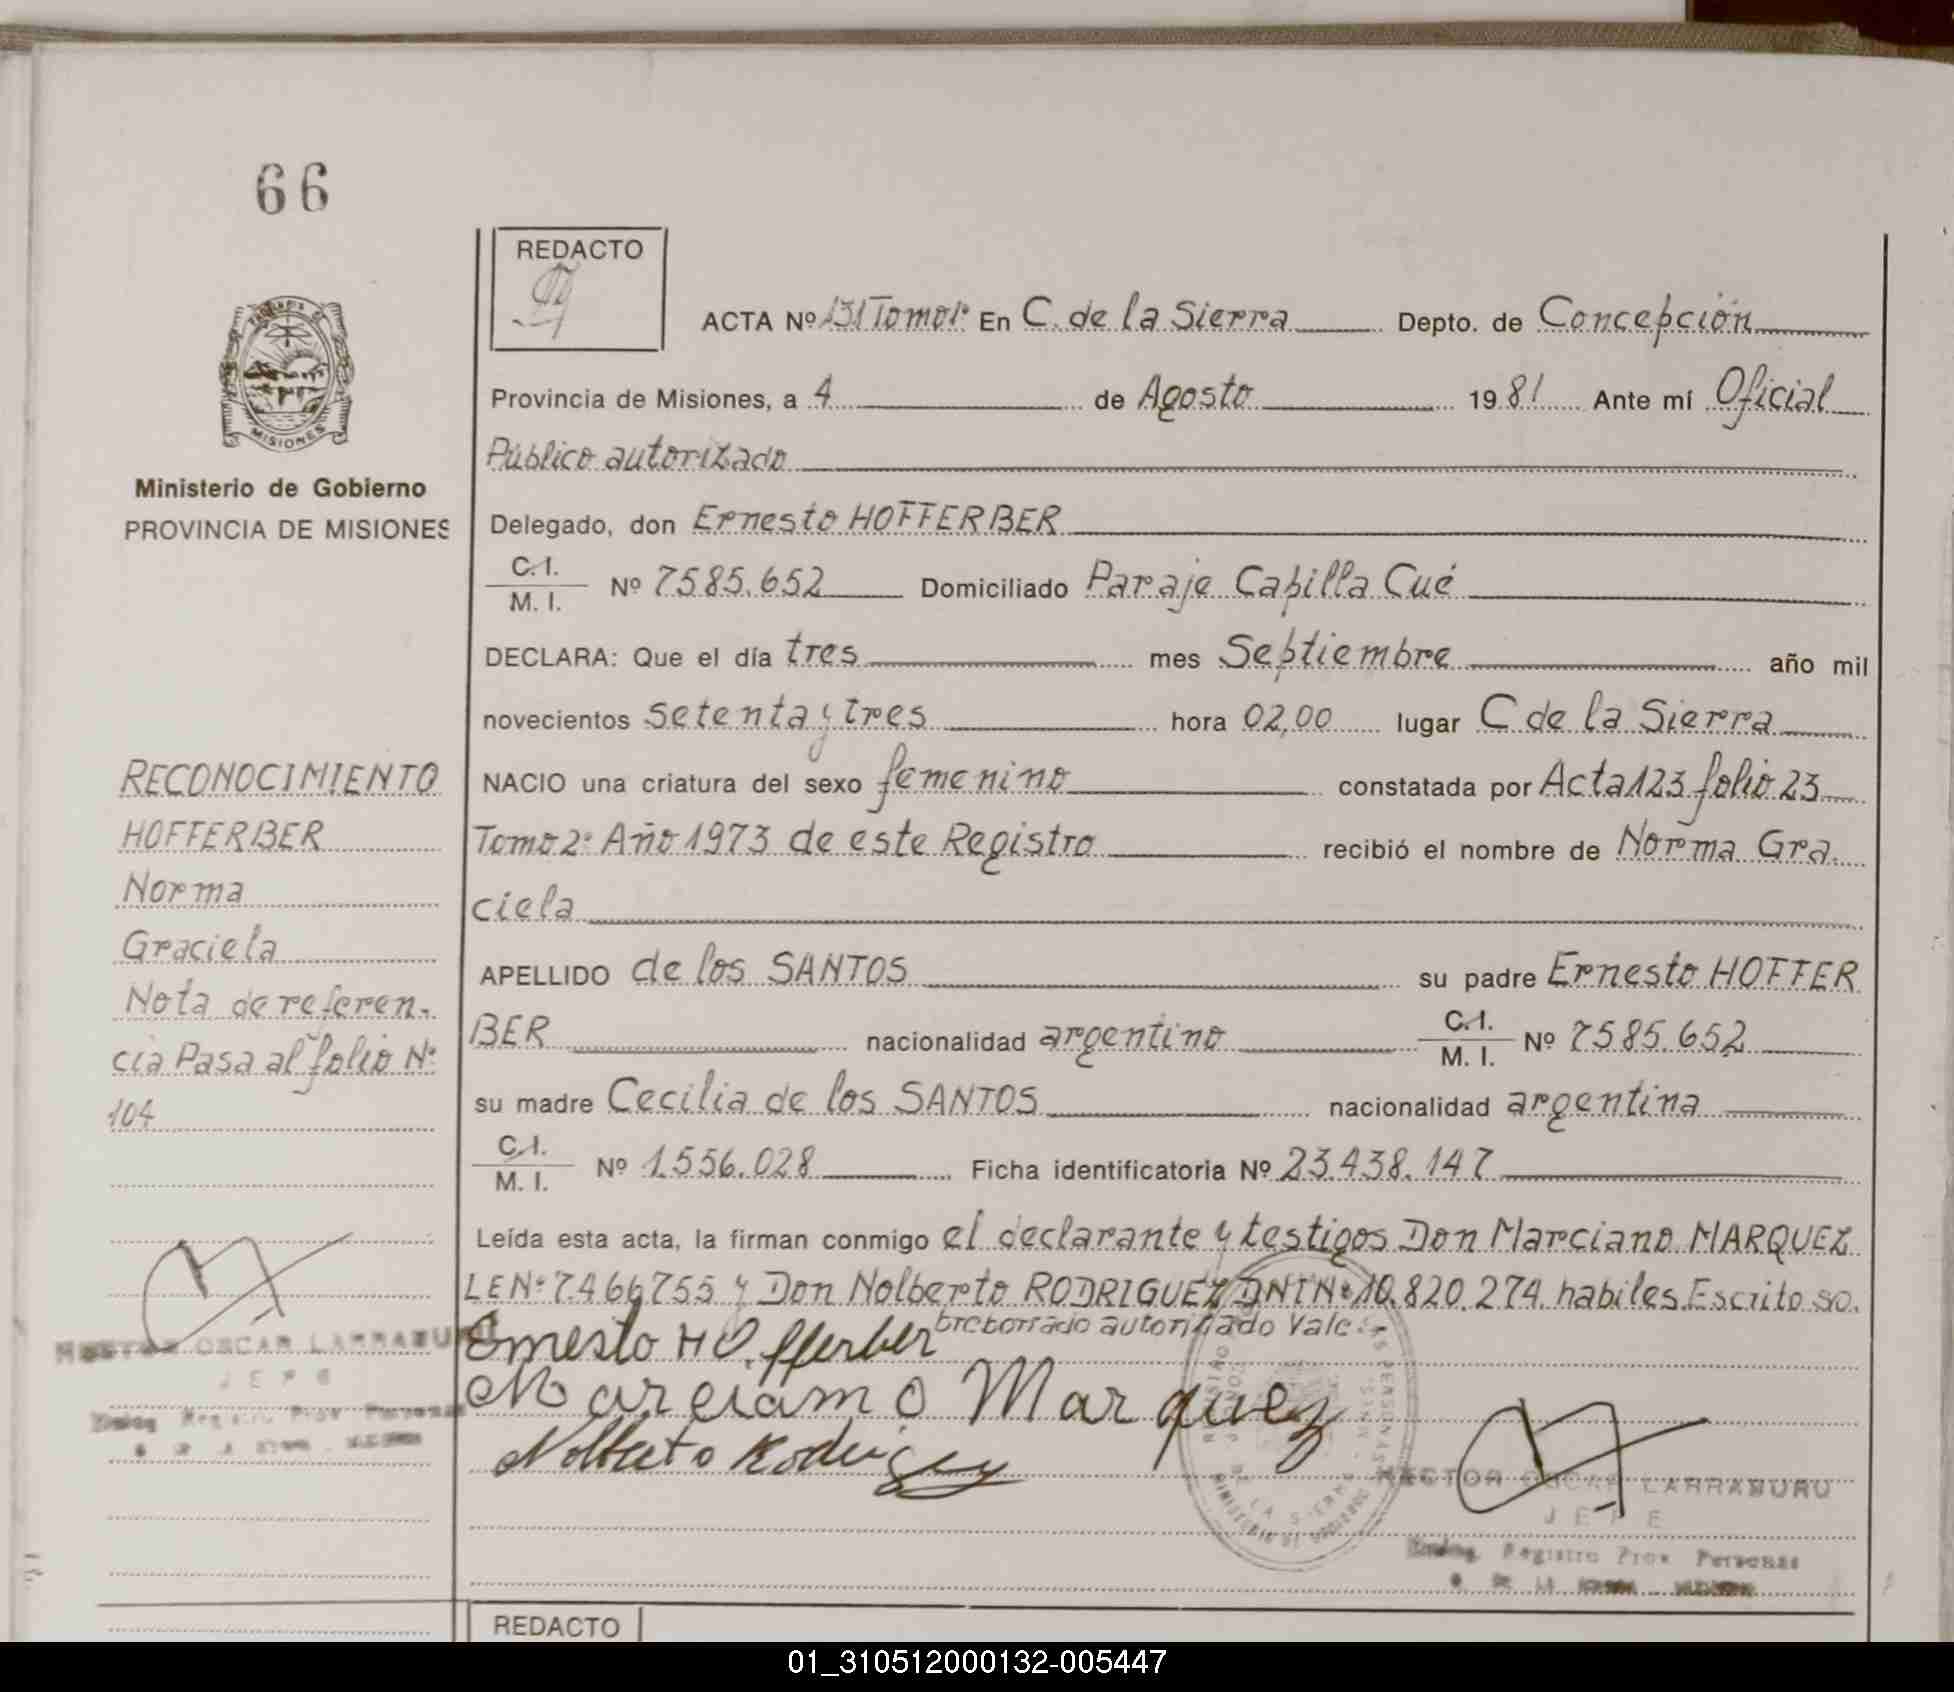 66
REDACTO
ACTA Nº 131 Tomo 1º En C. de la Sierra Depto. de Concepción
Provincia de Misiones, a 4 de Agosto 1981 Ante mí Oficial
Público autorizado
Delegado, don Ernesto HOFFERBER
C.I.
M. I. Nº 7585.652 Domiciliado Paraje Capilla Cué
DECLARA: Que el día tres mes Septiembre año mil
novecientos setenta y tres hora 02,00 lugar C de la Sierra
NACIO una criatura del sexo femenino constatada por Acta 123 folio 23
Tomo 2º Año 1973 de este Registro recibió el nombre de Norma Gra
ciela
APELLIDO de los SANTOS su padre Ernesto HOFFER
BER nacionalidad argentino C.I.
M. I. Nº 7585.652
su madre Cecilia de los SANTOS nacionalidad argentina
C.I.
M. I. Nº 1.556.028 Ficha identificatoria Nº 23.438.147
Leída esta acta, la firman conmigo el declarante y testigos Don Marciano MARQUEZ
LE Nº 7.466755 y Don Nolberto RODRIGUEZ DNI Nº 10.820.274 habiles. Escrito so.
breborrado autorizado Vale.-
Ernesto HOfferber
Marciano Marquez
Nolberto Rodriguez
HECTOR OSCAR LARRABURU
JEFE
Registro Prov Personas
MISIONES
Ministerio de Gobierno
PROVINCIA DE MISIONES
RECONOCIMIENTO
HOFFERBER
Norma
Graciela
Nota de referen-
cia Pasa al folio Nº
104
HECTOR OSCAR LARRABURU
JEFE
Registro Prov Personas
REDACTO
01_310512000132-005447